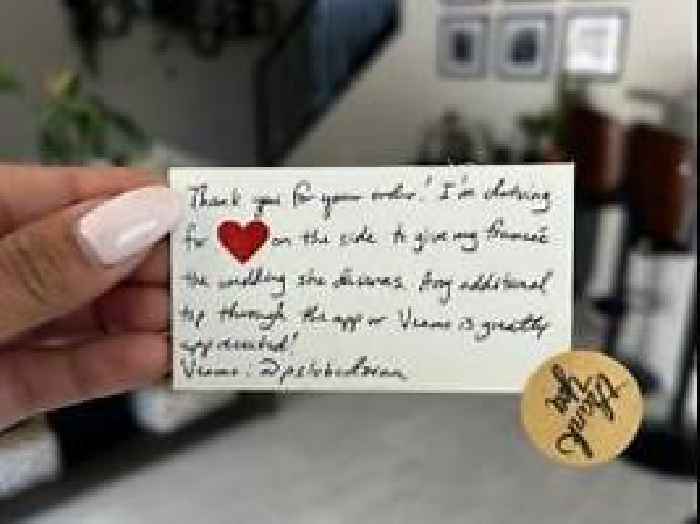 Thank you for your order! I'm driving
for ❤ on the side to give my fianceé
the wedding she deserves. Any additional
tip through the app or Venmo is greatly
appreciated!
Venmo:
thank
you